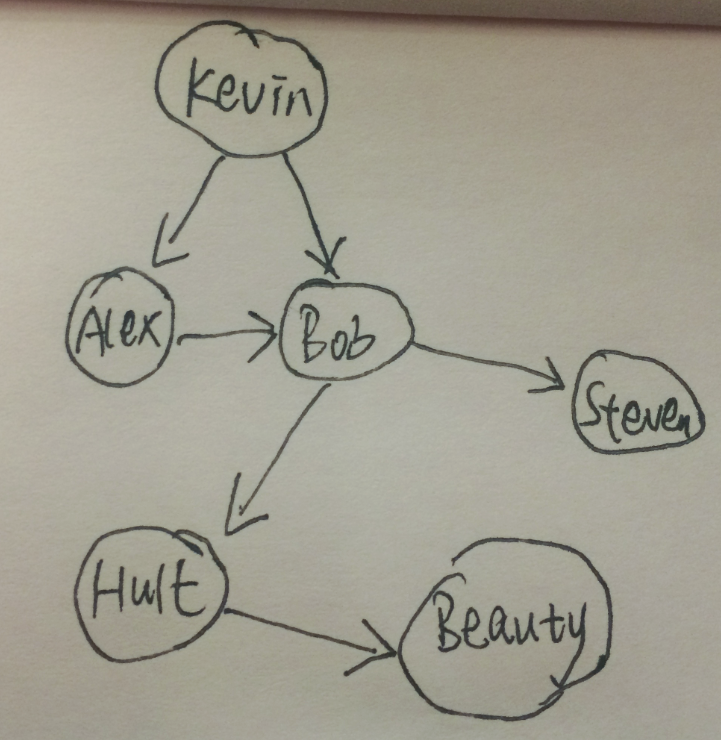 Kevin
Alex
Bob
Steven
Hult
Beauty